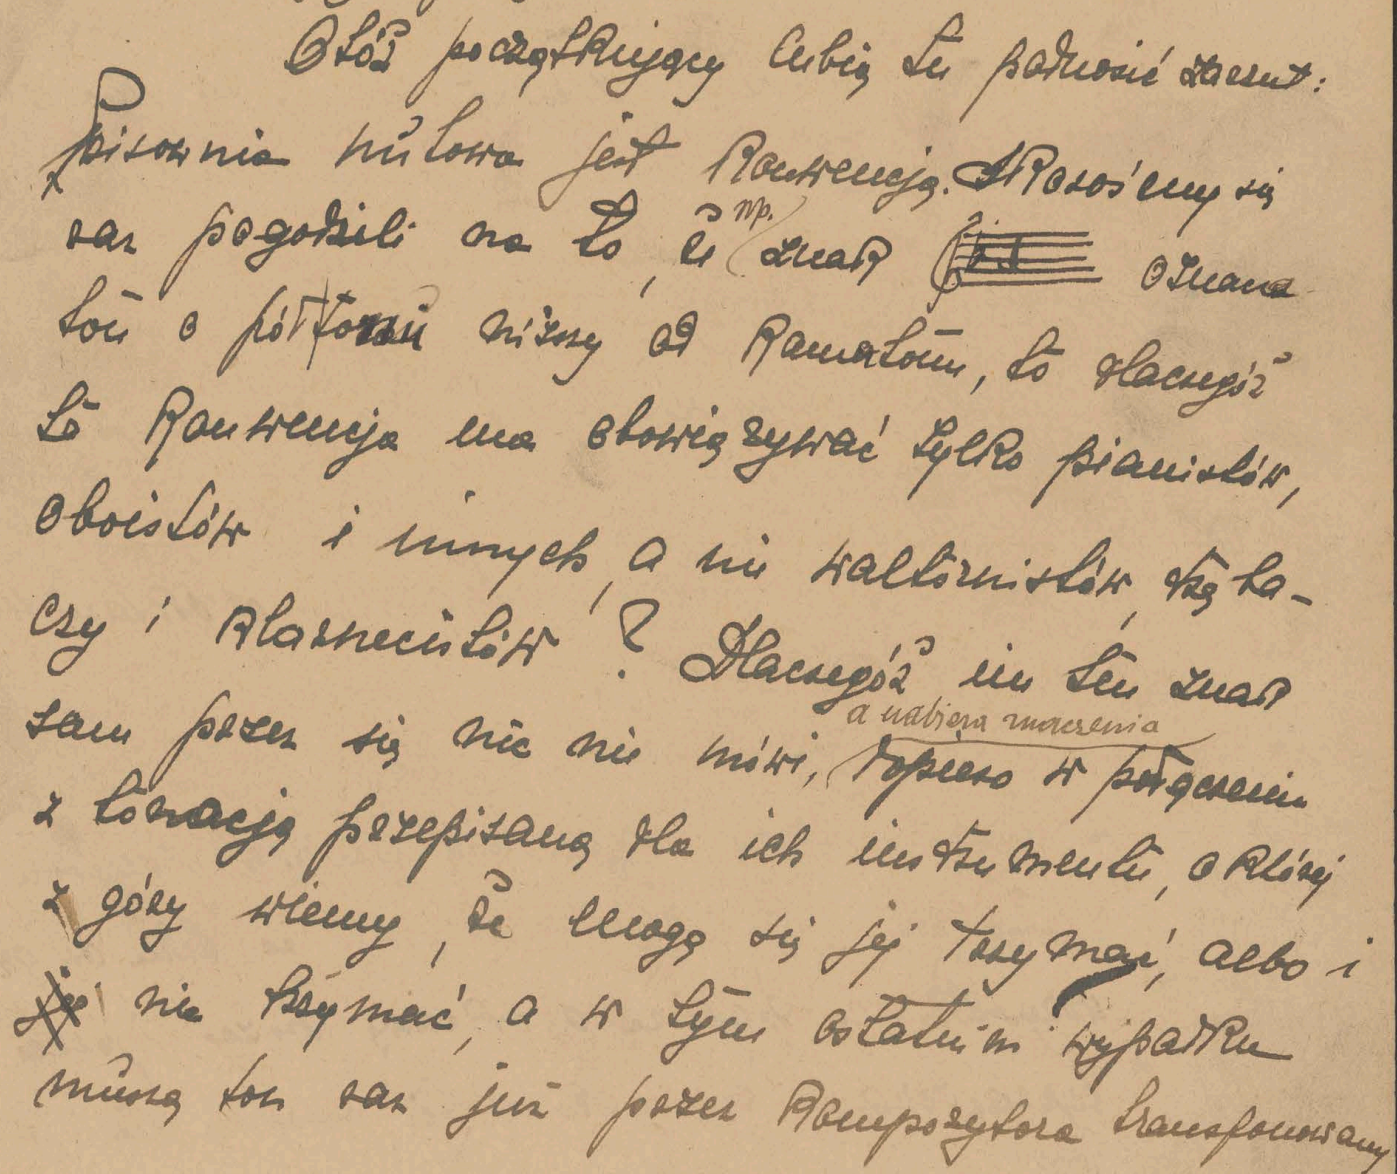 Otóż początkujący lubią tu podnosić zarzut:
pisownia nutowa jest konwencją. Skorośmy się
raz pogodzili na to, że np. znak oznacza
ton o półtonu niższy od kamertonu, to dlaczegóż
ta konwencja ma obowiązywać tylko pianistów,
oboistów i innych, a nie waltornistów, tręba-
czy i klarnecistów? Dlaczegóż im ten znak
a nabiera znaczenia
sam przez się nic nie mówi, dopiero w połączeniu
z tonacją przepisaną dla ich instrumentu, o której
z góry wiemy, że mogą się jej trzymać, albo i
nie trzymać, a w tym ostatnim wypadku
muszą ton raz już przez kompozytora transponowany